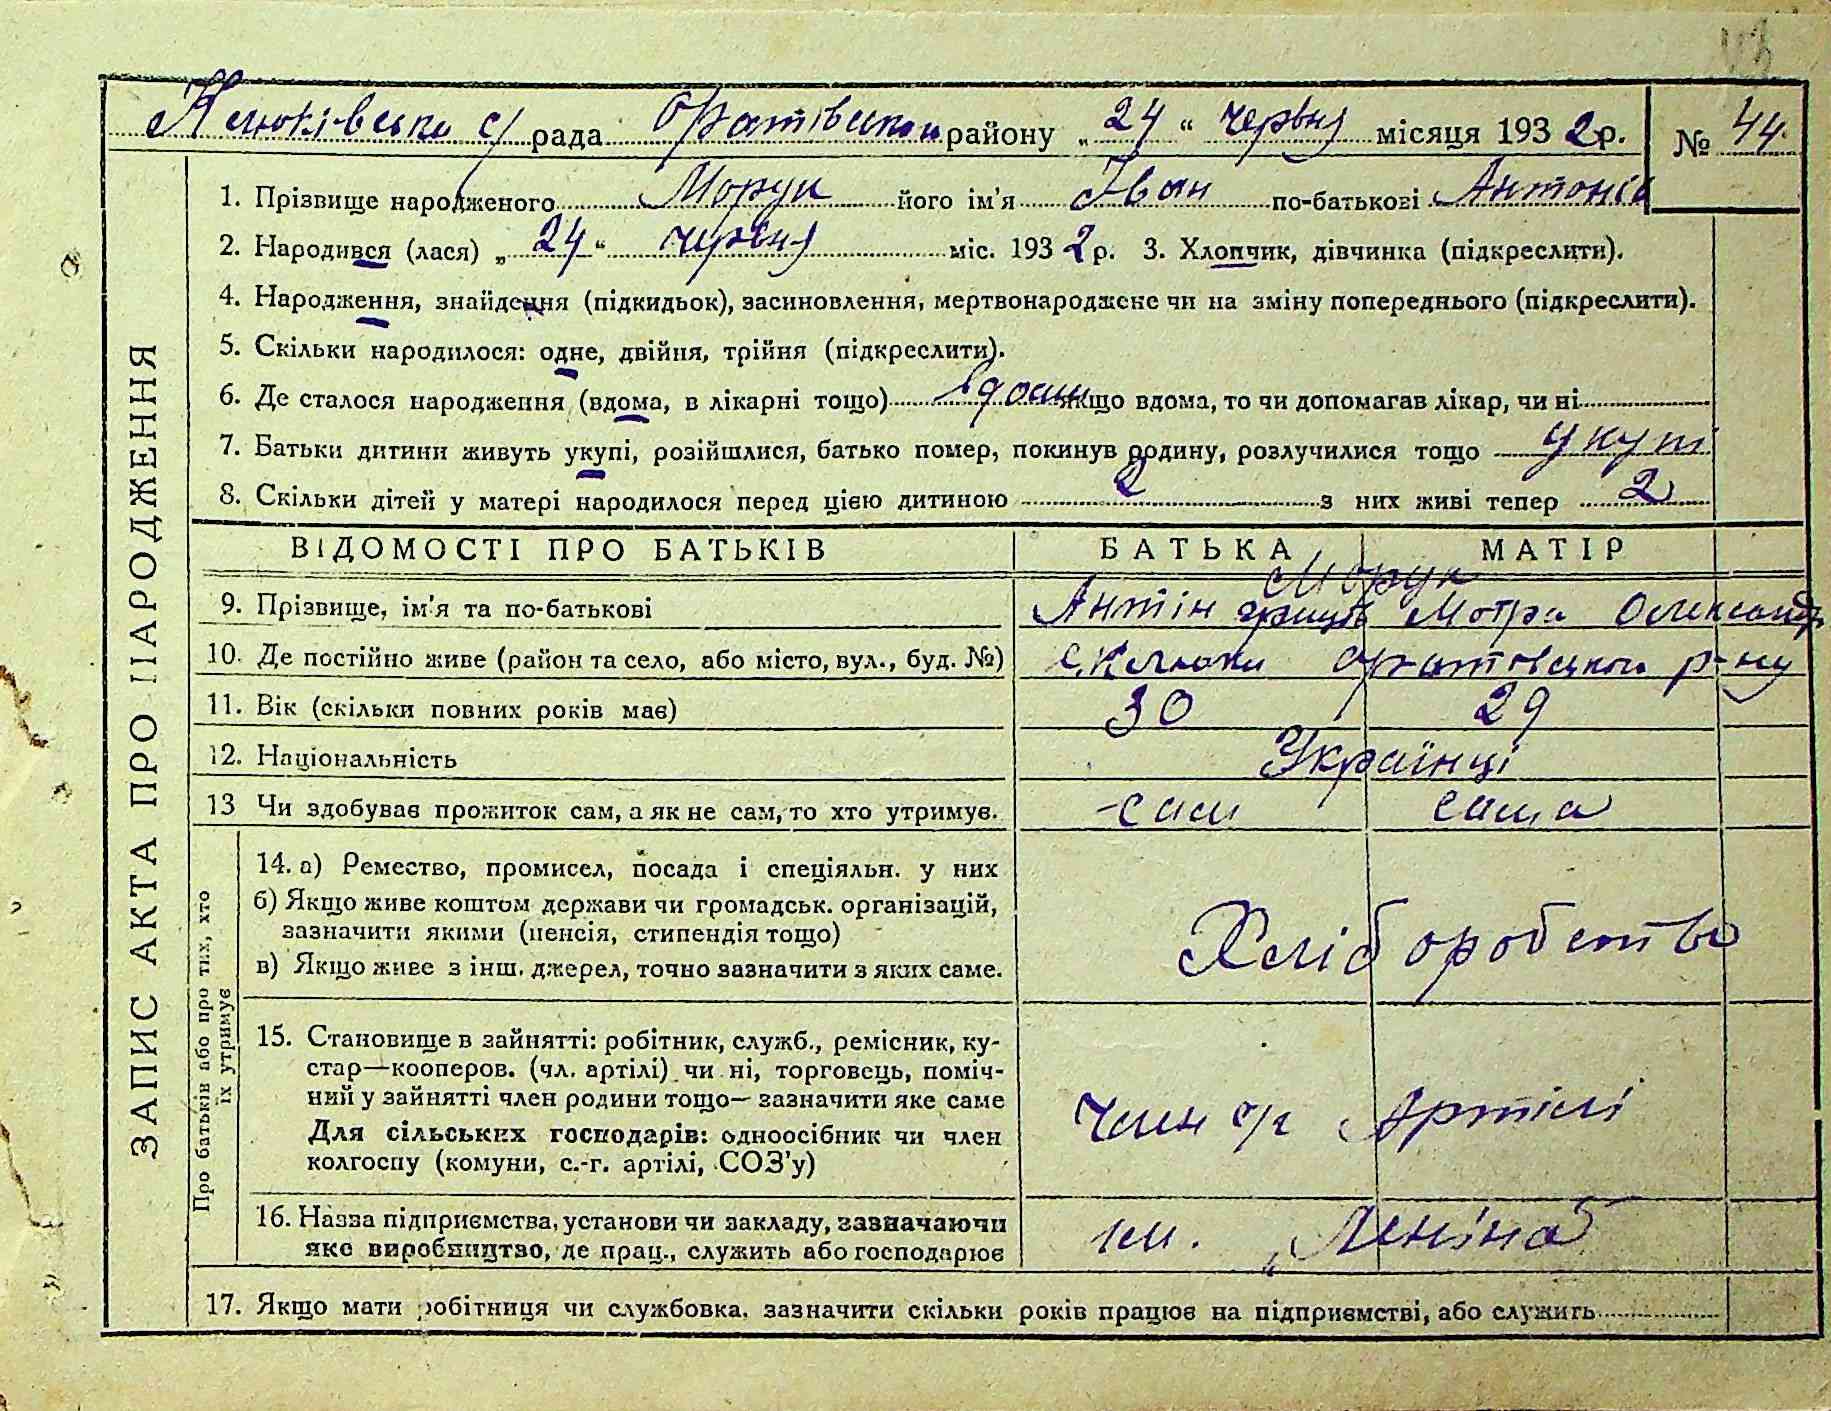 43
Клюківська с/рада Оратівського району „24“ червня місяця 1932р. № 44
1. Прізвище народженого Морук його ім'я Іван по-батькові Антонів
2. Народився (лася) „24“ червня міс. 1932р. 3. Хлопчик, дівчинка (підкреслити).
4. Народження, знайдення (підкидьок), засиновлення, мертвонароджене чи на зміну попереднього (підкреслити).
5. Скільки народилося: одне, двійня, трійня (підкреслити).
6. Де сталося народження (вдома, в лікарні тощо) Вдома якщо вдома, то чи допомагав лікар, чи ні
7. Батьки дитини живуть укупі, розійшлися, батько помер, покинув родину, розлучилися тощо укупі
8. Скільки дітей у матері народилося перед цією дитиною 2 з них живі тепер 2
ВІДОМОСТІ ПРО БАТЬКІВ БАТЬКА МАТІР
Морук
9. Прізвище, ім'я та по-батькові Антін Гриців Мотря Олександр
10. Де постійно живе (район та село, або місто, вул., буд. №) с. Клюки Оратовського р-ну
11. Вік (скільки повних років має) 30 29
12. Національність Українці
13 Чи здобуває прожиток сам, а як не сам, то хто утримує. сам сама
14. а) Ремество, промисел, посада і спеціяльн. у них
б) Якщо живе коштом держави чи громадськ. організацій,
зазначити якими (пенсія, стипендія тощо)
в) Якщо живе з інш. джерел, точно зазначити з яких саме.
Хліборобство
15. Становище в зайнятті: робітник, служб., ремісник, ку-
стар—кооперов. (чл. артілі) чи ні, торговець, поміч-
ний у зайнятті член родини тощо— зазначити яке саме
Для сільських господарів: одноосібник чи член
колгоспу (комуни, с.-г. артілі, СОЗ'у)
Член с/г Артілі
16. Назва підприємства, установи чи закладу, зазначаючи
яке виробництво, де прац., служить або господарює
ім. „Леніна“
17. Якщо мати робітниця чи службовка, зазначити скільки років працює на підприємстві, або служить
ЗАПИС АКТА ПРО НАРОДЖЕННЯ
Про батьків або про тих, хто
їх утримує